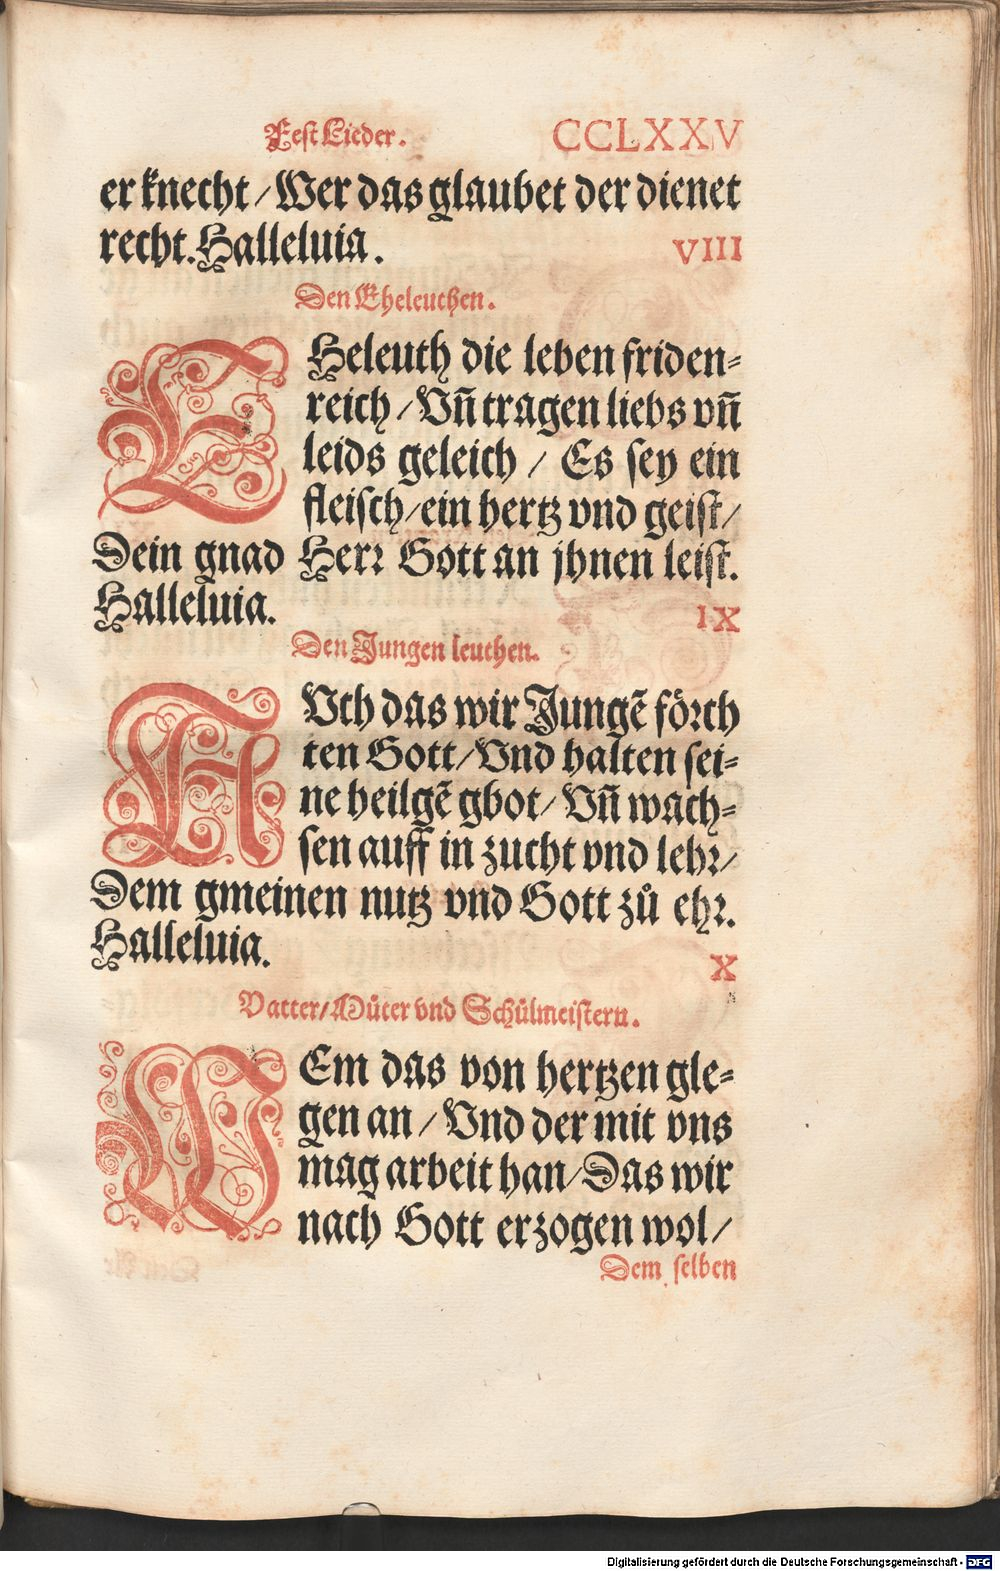 Fest Lieder. CCLXXV
er knecht / Wer das glaubet der dienet
recht. Halleluia. VIII
Den Eheleuthen.
EHeleuth die leben friden⸗
reich / Vñ tragen liebs vñ
leids geleich / Es sey ein
fleisch / ein hertz vnd geist /
Dein gnad Herr Gott an jhnen leist.
Halleluia. IX
Den Jungen leuthen.
AVch das wir Jungẽ förch
ten Gott / Vnd halten sei⸗
ne heilgẽ gbot / Vñ wach⸗
sen auff in zucht vnd lehr /
Dem gmeinen nutz vnd Gott zů ehr.
Halleluia. X
Vatter / Můter vnd Schůlmeistern.
WEm das von hertzen gle⸗
gen an / Vnd der mit vns
mag arbeit han / Das wir
nach Gott erzogen wol /
Dem selben
Digitalisierung gefördert durch die Deutsche Forschungsgemeinschaft - DFG